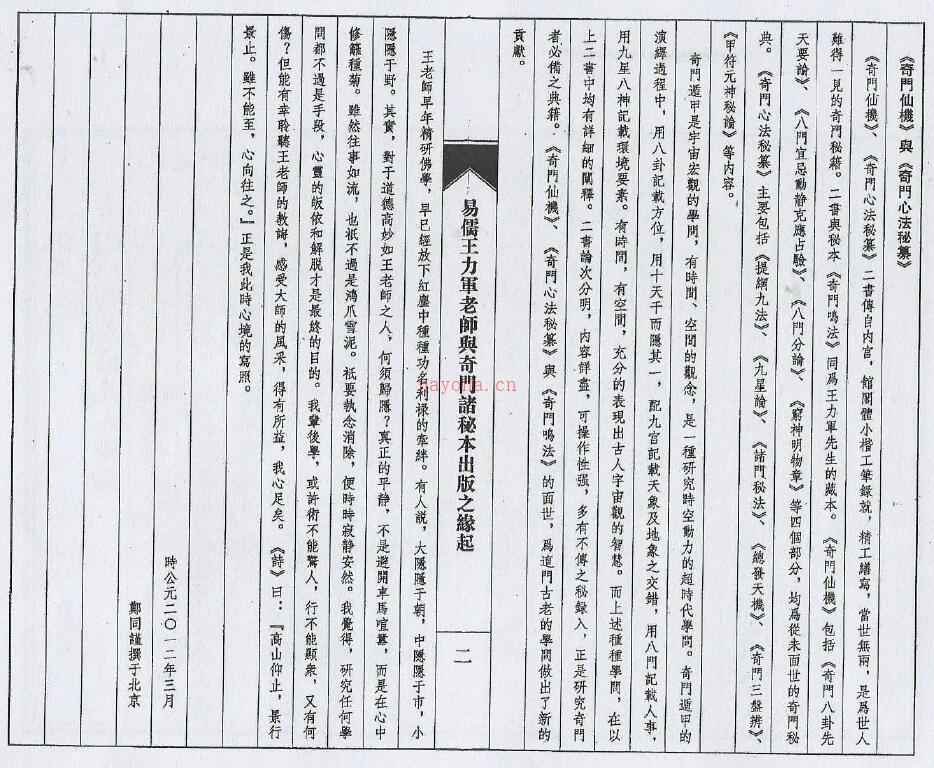 《奇門仙機》與《奇門心法秘纂》
《奇門仙機》、《奇門心法秘纂》二書傳自内宫，館閣體小楷工筆録就，精工繕寫，當世無兩，是爲世人
難得一見的奇門秘籍。二書與秘本《奇門鳴法》同爲王力軍先生的藏本。《奇門仙機》包括《奇門八卦先
天要論》、《八門宜忌動静克應占驗》、《八門分論》、《窮神明物章》等四個部分，均爲從未面世的奇門秘
典。《奇門心法秘纂》主要包括《提綱九法》、《九星論》、《諸門秘法》、《總發天機》、《奇門三盤辨》、
《甲符元神秘論》等内容。
奇門遁甲是宇宙宏觀的學問，有時間、空間的觀念，是一種研究時空動力的超時代學問。奇門遁甲的
演繹過程中，用八卦記載方位，用十天干而隱其一，配九宫記載天象及地象之交錯，用八門記載人事，
用九星八神記載環境要素。有時間，有空間，充分的表現出古人宇宙觀的智慧。而上述種種學問，在以
上二書中均有詳細的闡釋。二書論次分明，内容詳盡，可操作性强，多有不傳之秘録入，正是研究奇門
者必備之典籍。《奇門仙機》、《奇門心法秘纂》與《奇門鳴法》的面世，爲這門古老的學問做出了新的
貢獻。
易儒王力軍老師與奇門諸秘本出版之緣起
二
王老師早年精研佛學，早已經放下紅塵中種種功名利禄的牽絆。有人説，大隱隱于朝，中隱隱于市，小
隱隱于野。其實，對于道德高妙如王老師之人，何須歸隱？真正的平静，不是避開車馬喧囂，而是在心中
修籬種菊。雖然往事如流，也衹不過是鴻爪雪泥。衹要執念消除，便時時寂静安然。我覺得，研究任何學
問都不過是手段，心靈的皈依和解脱才是最終的目的。我輩後學，或許術不能驚人，行不能顯衆，又有何
傷？但能有幸聆聽王老師的教誨，感受大師的風采，得有所益，我心足矣。《詩》曰：『高山仰止，景行
景止。雖不能至，心向往之。』正是我此時心境的寫照。
時公元二〇一二年三月
鄭同謹撰于北京
nayona.cn